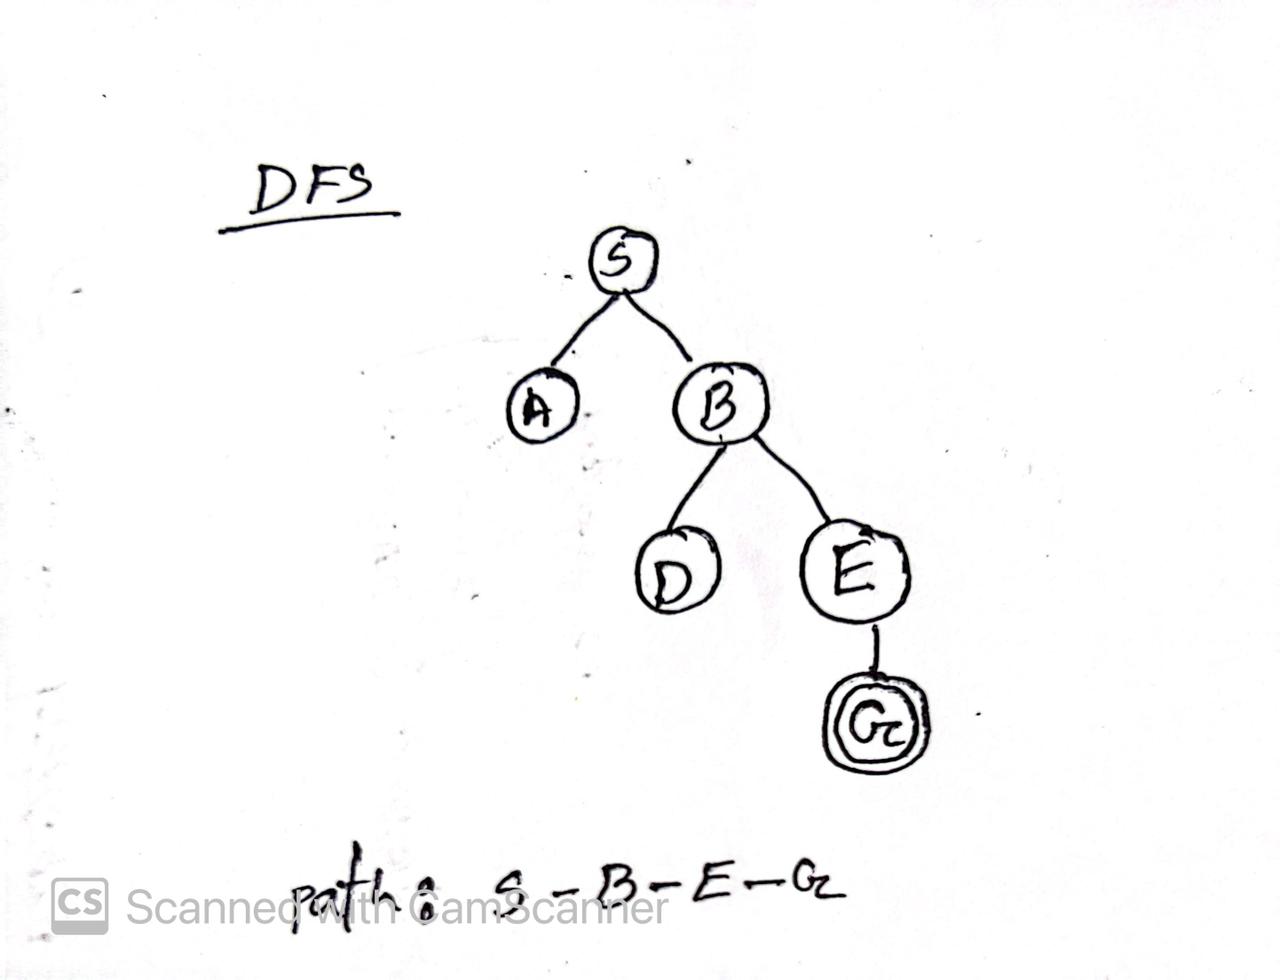 DFS
S
A B
D E
G
path: S - B - E - G
CS Scanned with CamScanner